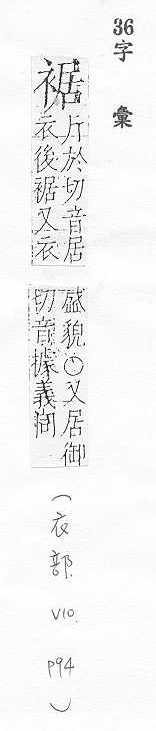 36字彙
裾
斤於切音居
衣後裾又衣
盛貌○又居御
切音據義同
(衣部. V10. P94)